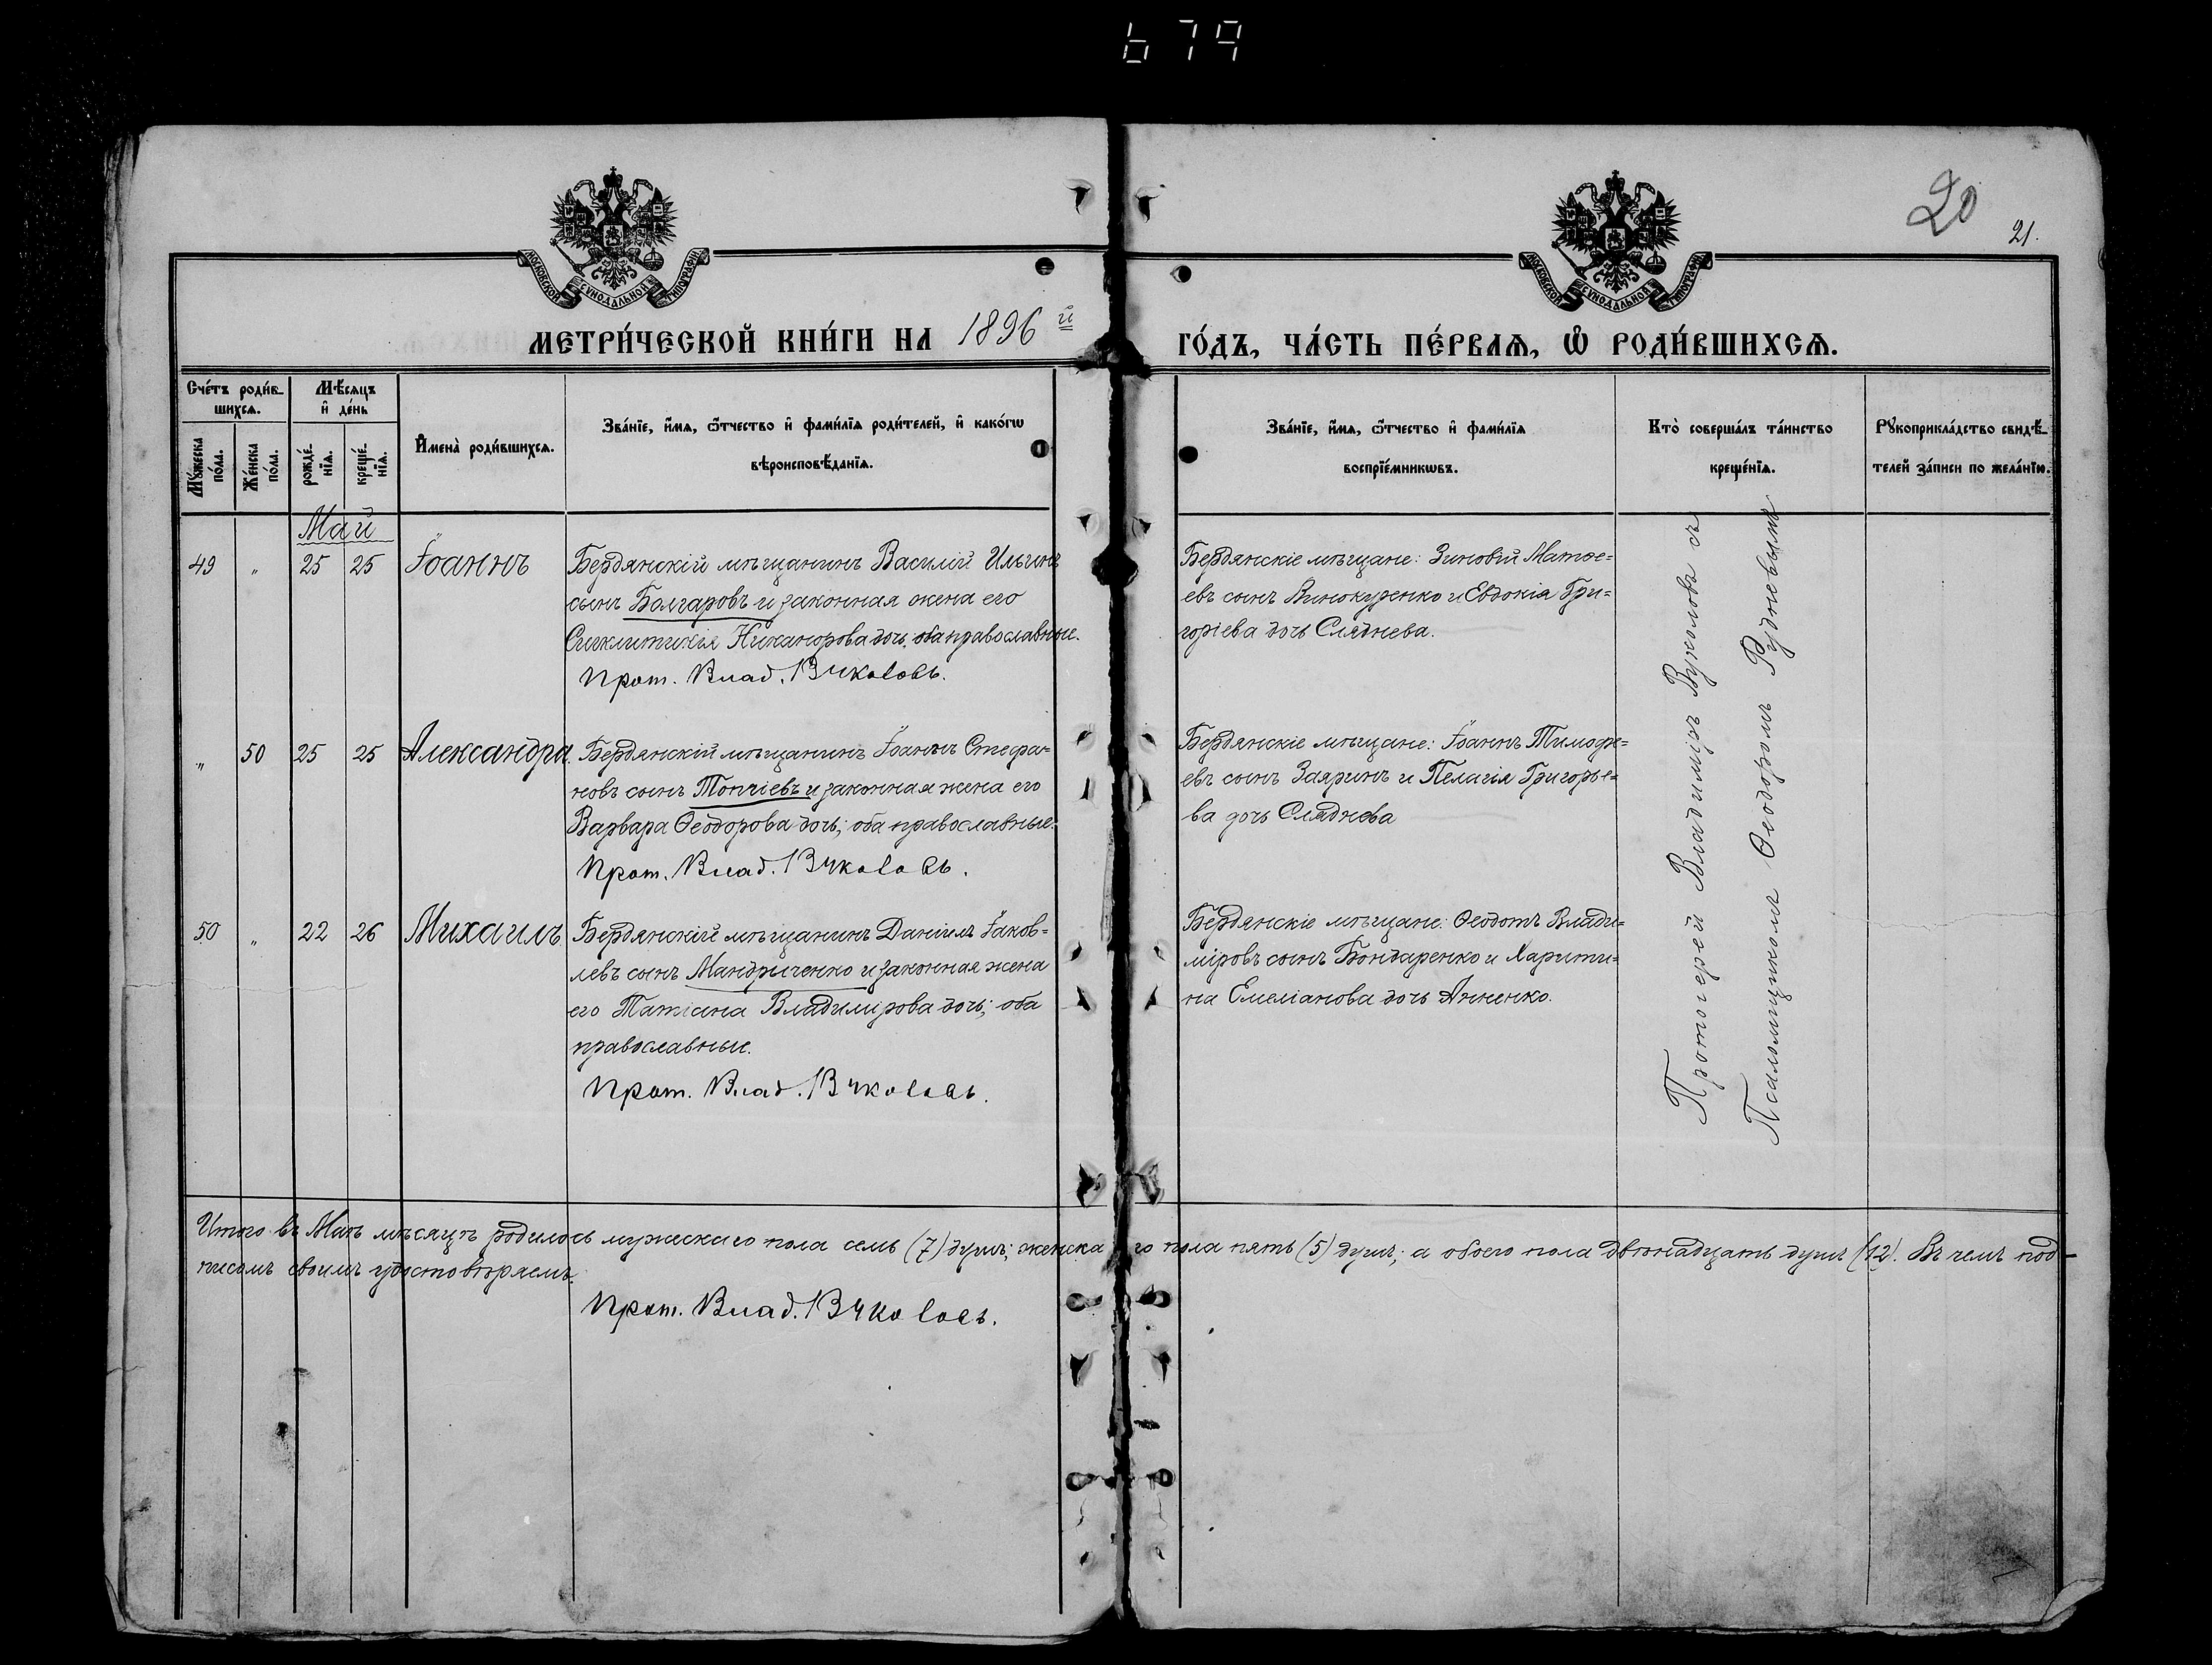 679
20
21.
МОСКОВСКОЙ СУНОДАЛЬНОЙ ТИПОГРАФІИ
МОСКОВСКОЙ СУНОДАЛЬНОЙ ТИПОГРАФІИ
МЕТРИ́ЧЕСКОЙ КНИ́ГИ НА 1896 й ГО́ДЪ, ЧА́СТЬ ПЕ́РВАѦ, Ѽ РОДИ́ВШИХСѦ.
Сче́тъ роди́в-
шихсѧ.
Мꙋ́жеска
по́ла.
Же́нска
по́ла.
Мѣ́сяцъ
и҆ де́нь
рожде́-
нїѧ.
креще́-
нїѧ.
И҆мена̀ роди́вшихсѧ.
Зва́нїе, и҆́мѧ, ѻ҆́тчество и҆ фами́лїѧ роди́телей, и҆ како́гѡ
вѣроисповѣ́данїѧ.
Зва́нїе, и҆́мѧ, ѻ҆́тчество и҆ фами́лїѧ
воспрїе́мникѡвъ.
Кто̀ соверша́лъ та́инство
креще́нїѧ.
Рꙋкоприкла́дство свидѣ́-
телей за́писи по жела́нїю.
Май
49 „ 25 25 Іоаннъ
Бердянскій мѣщанинъ Василій Ильинъ
сынъ Болгаровъ и законная жена его
Сигклитикія Никанорова дочь, оба православные.
Прот. Влад. Вуколовъ.
Бердянскіе мѣщане: Зиновій Матѳе-
евъ сынъ Винокуренко и Евдокія Гри-
горіева дочь Сляднева.
„ 50 25 25 Александра.
Бердянскій мѣщанинъ Іоаннъ Стефа-
новъ сынъ Топчіевъ и законная жена его
Варвара Ѳеодорова дочь; оба православные.
Прот. Влад. Вуколовъ.
Бердянскіе мѣщане: Іоаннъ Тимофе-
евъ сынъ Заяринъ и Пелагія Григорье-
ва дочь Сляднева
50 „ 22 26 Михаилъ
Бердянскій мѣщанинъ Даніилъ Іаков-
левъ сынъ Мандриченко и законная жена
его Татіана Владимірова дочь; оба
православные.
Прот. Влад. Вуколовъ.
Бердянскіе мѣщане: Ѳеодотъ Влади-
міровъ сынъ Бондаренко и Харити-
на Емеліанова дочь Анненко.
Протоіерей Владиміръ Вуколовъ съ
Псаломщикомъ Ѳеодоромъ Рудневымъ
Итого въ Маѣ мѣсяцѣ родилось мужескаго пола семь (7) душъ; женскаго пола пять (5) душъ; а обоего пола двѣнадцать душъ (12). Въ чемъ под-
писомъ своимъ удостовѣряемъ.
Прот. Влад. Вуколовъ.